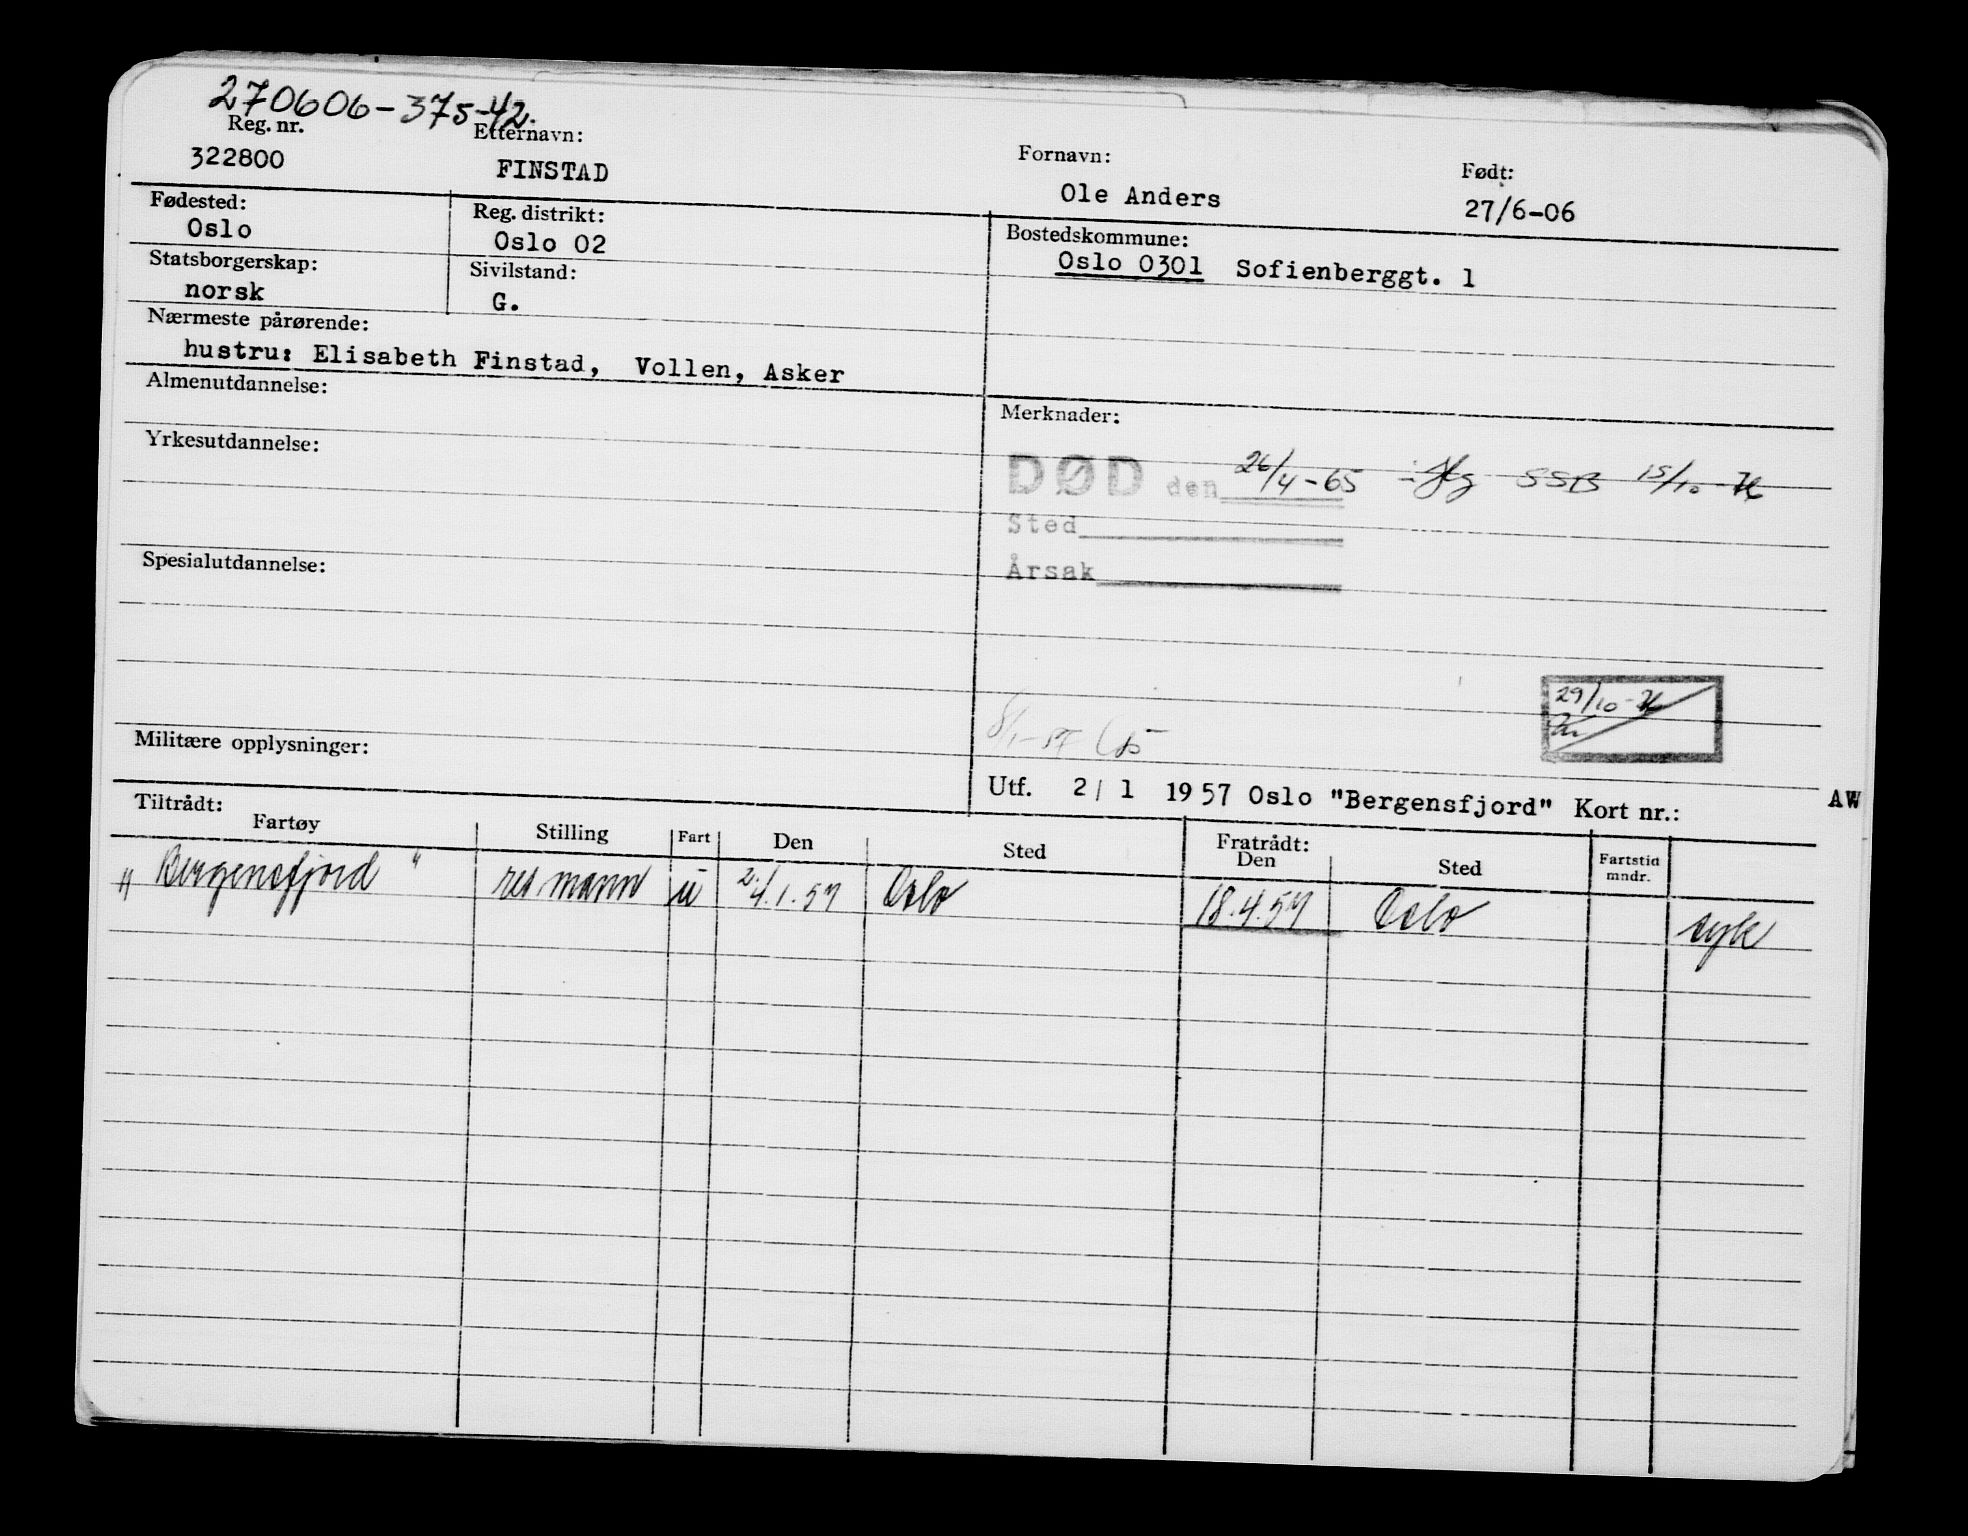 270606-375-42.
Reg. nr. Etternavn: Fornavn: Født:
322800 FINSTAD Ole Anders 27/6-06
Fødested: Reg. distrikt: Bostedskommune:
Oslo Oslo 02 Oslo 0301 Sofienberggt. 1
Statsborgerskap: Sivilstand:
norsk G.
Nærmeste pårørende:
hustru: Elisabeth Finstad, Vollen, Asker
Almenutdannelse: Merknader:
Yrkesutdannelse:
DØD den 26/4-65 SSB 15/10-76
Sted
Årsak
Spesialutdannelse:
29/10-76
8/1-57
Militære opplysninger:
Utf. 2/1 1957 Oslo "Bergensfjord" Kort nr.: AW
Tiltrådt: Fratrådt:
Fartøy Stilling Fart Den Sted Den Sted Fartstid mndr.
"Bergensfjord" res mann u 2/4.1.57 Oslo 18.4.57 Oslo syk